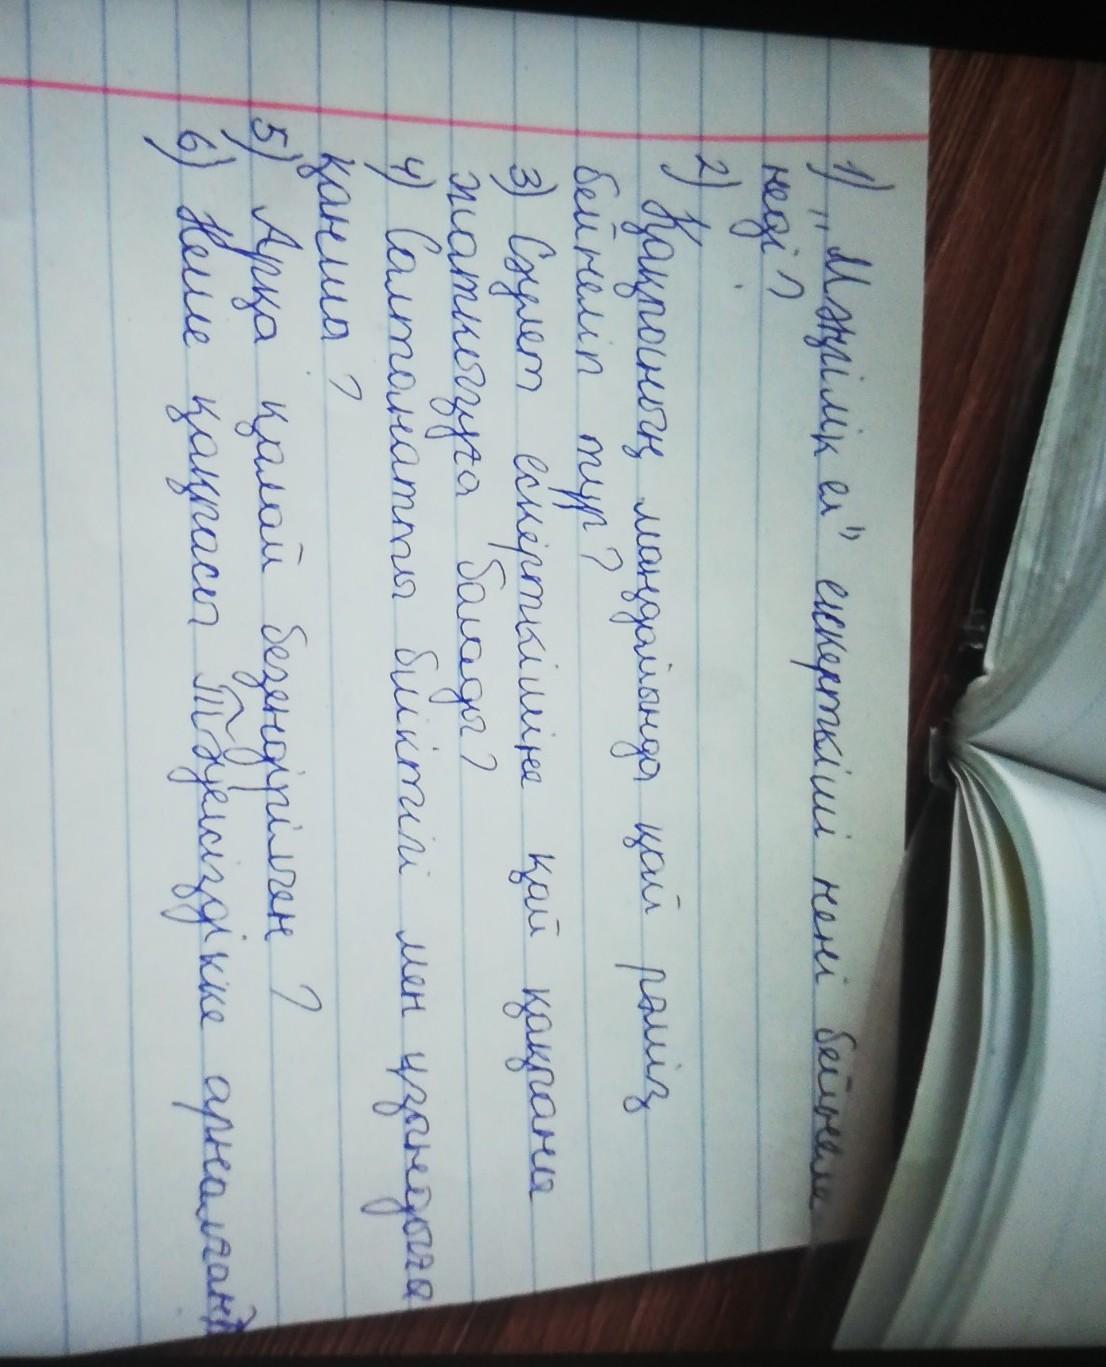 1) "Мәңгілік ел" ескерткіші нені бейнеле
неді?
2) Қақпаның маңдайында қай рәміз
бейнеліп тұр?
3) Сәулет ескерткішіне қай қақпаны
жатқызуға болады?
4) Салтанатты биіктігі мен ұзындығы
қанша?
5) Арқа қалай безендірілген?
6) Неше қақпасы Тәуелсіздікке арналған